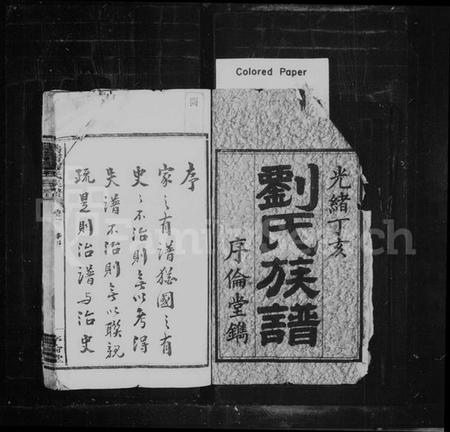 Colored Paper
光緒丁亥
劉氏族譜
序倫堂鐫
序
家之有譜猶國之有
史史不治則無以考得
失譜不治則無以聯親
疏是則治譜与治史